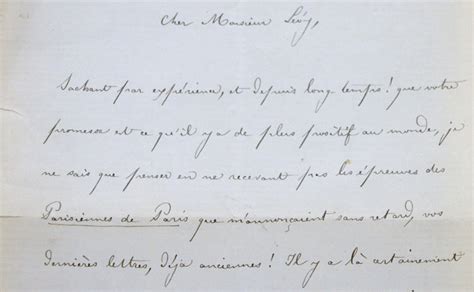 Cher Monsieur Lévy,
Sachant par expérience, et depuis long temps! que votre
promesse est ce qu'il y a de plus positif au monde, je
ne sais que penser en ne recevant pas les épreuves des
Parisiennes de Paris que m'annonçaient sans retard, vos
dernières lettres, déjà anciennes! Il y a là certainement